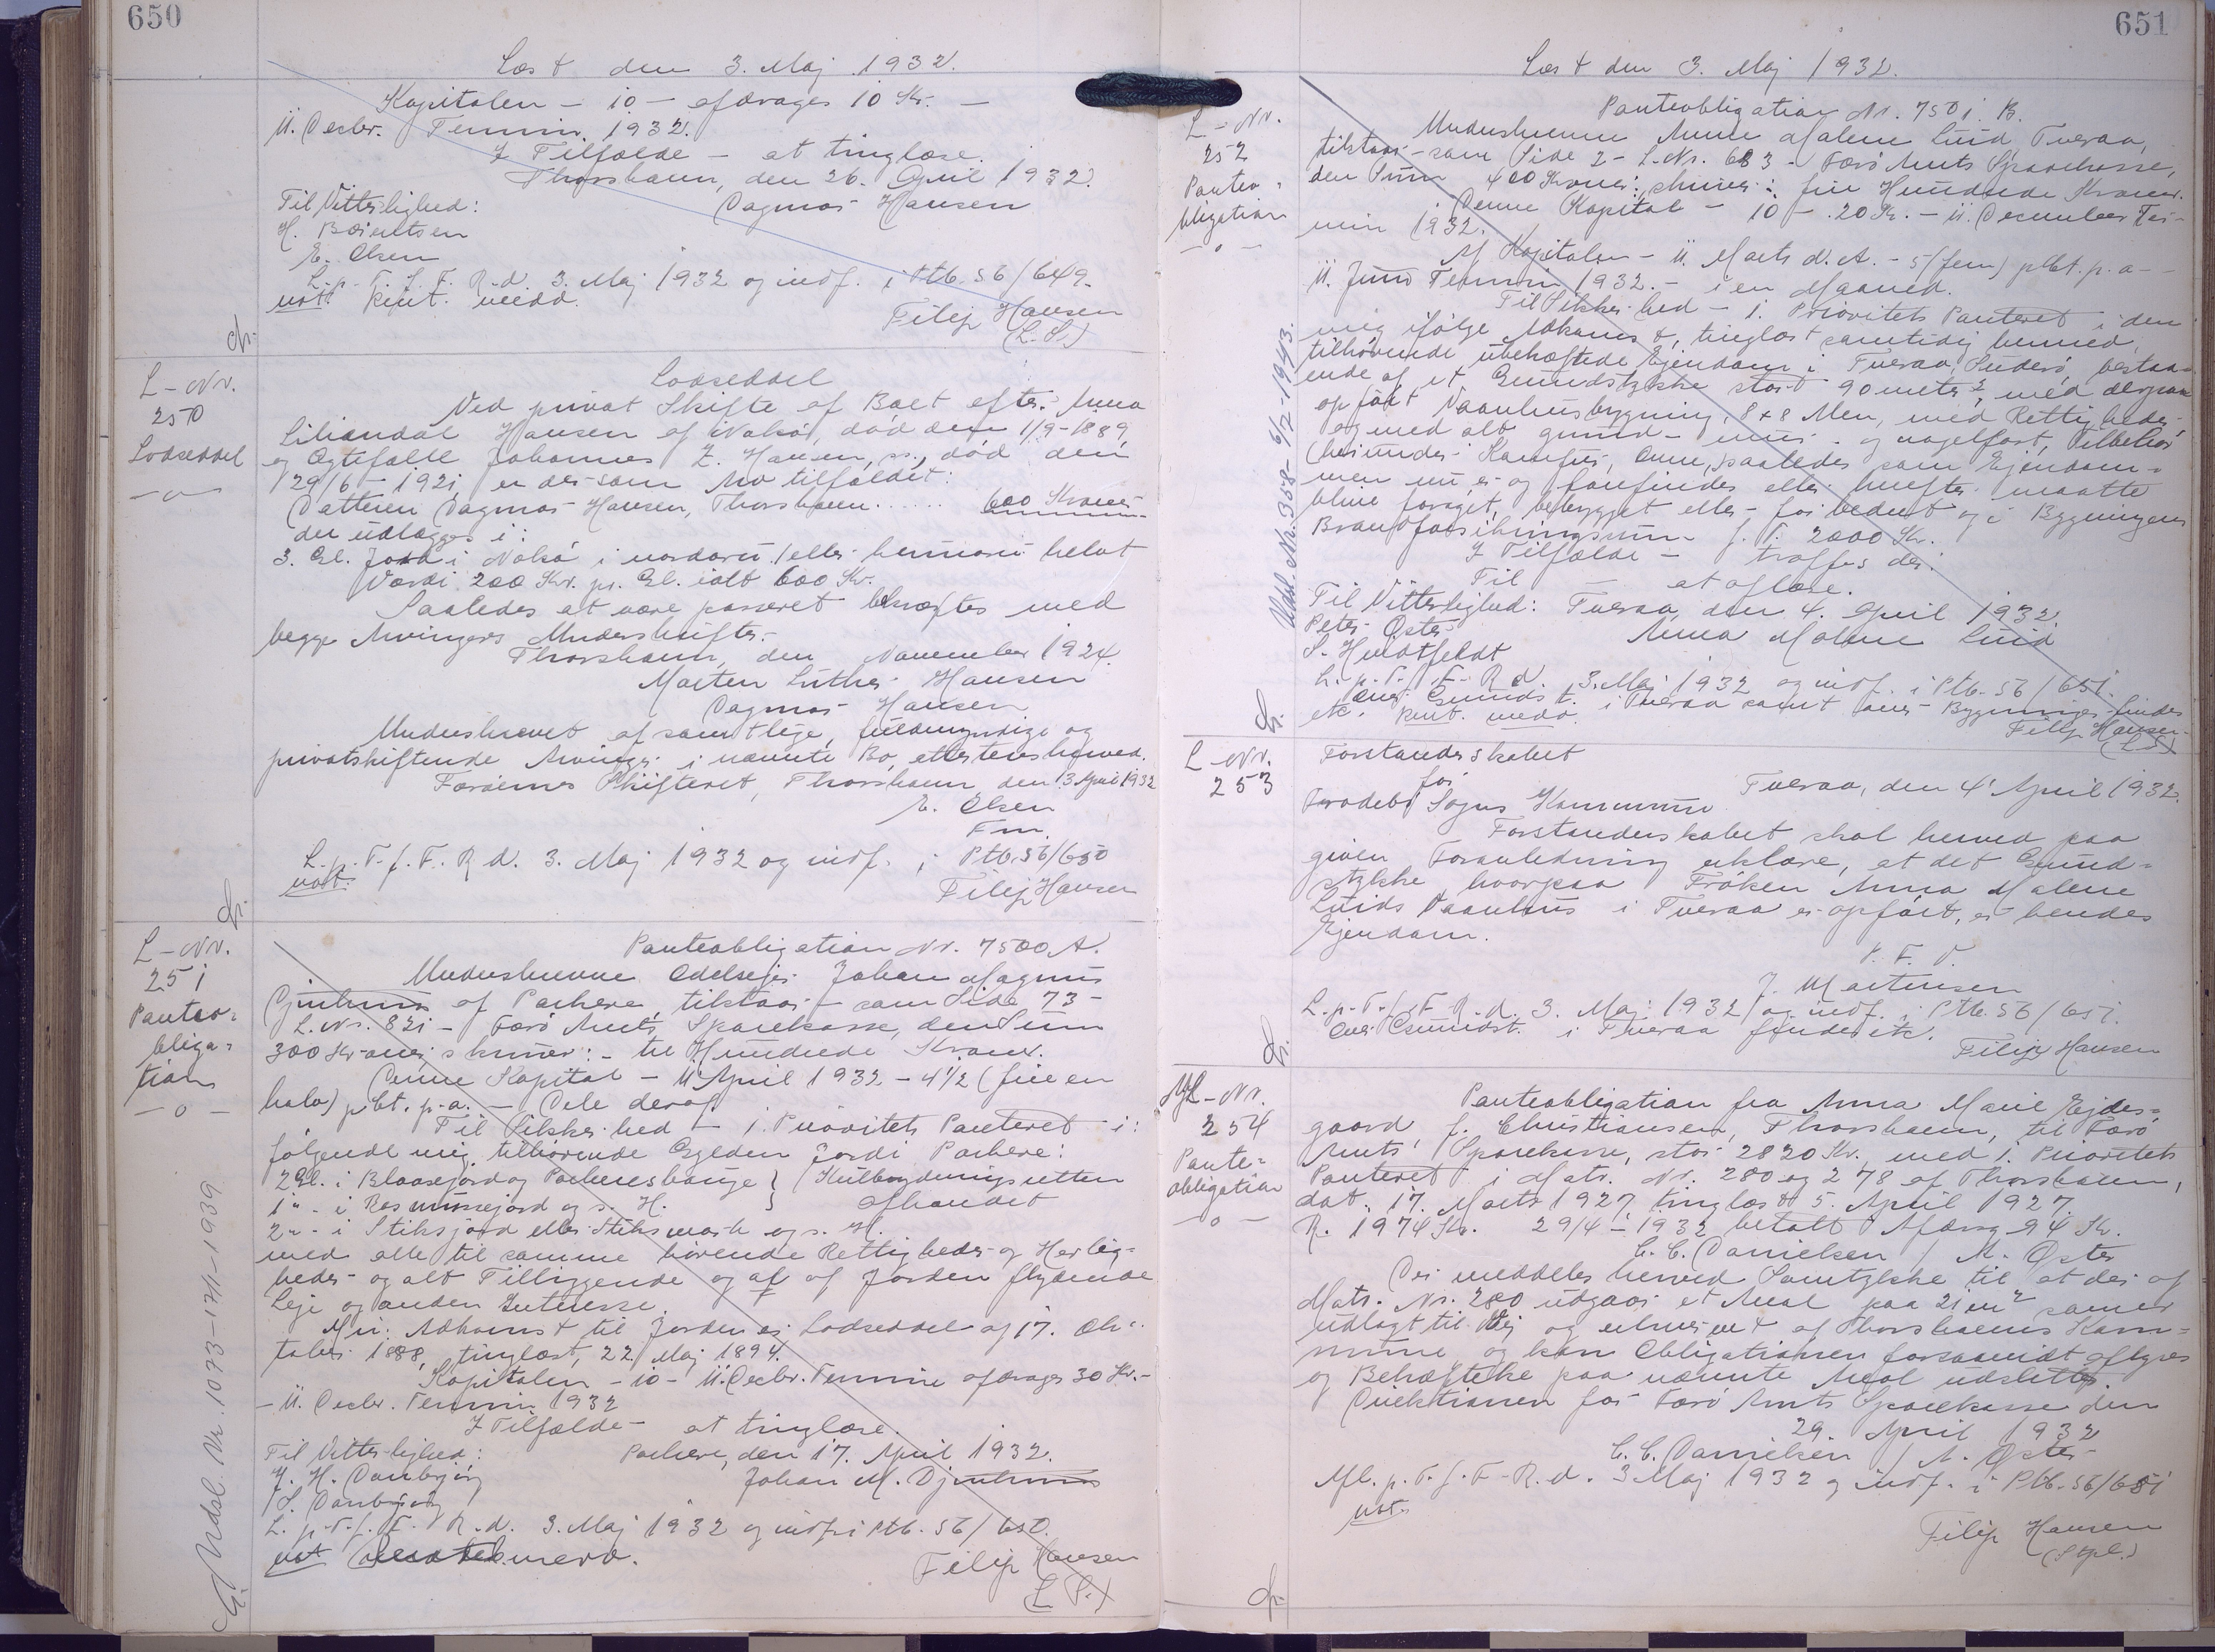 650
Læst den 3. Maj 1932.
Kapitalen - 10 - afdrages 10 Kr. -
11. Decbr. Termin 1932.
I Tilfælde - at tinglæse.
Thorshavn, den 26. April 1932.
Til Vitterlighed: Dagmar Hansen
H. Bærentsen
E. Olsen
L. p. T. f. F. R. d. 3. Maj 1932 og indf. i Ptb. 56/649.
not. kvit. medd.
Filip Hansen
(L. S.)
L-Nr.
250
Lodseddel
-o-
Lodseddel
Ved privat Skifte af Boet efter Anna
Hansen af Nolsø, død den 1/9-1889,
og Ægtefælle Johannes Z. Hansen, død den
29/6-1921 er der som Arv tilfaldet:
Datteren Dagmar Hansen, Thorshavn...... 600 Kroner
der udlægges i:
3. Gl. Jord i Nolsø i
Værdi 200 Kr. pr. Gl. ialt 600 Kr.
Saaledes at være passeret bekræftes med
begge Arvingers Underskrifter.
Thorshavn, den November 1924.
Morten Luther Hansen
Dagmar Hansen
Underskrevet af samtlige, fuldmyndige og
privatskiftende Arvinger i nævnte Bo, attesteres herved.
Færøernes Skifteret, Thorshavn, den 13. April 1932
E. Olsen
Fm.
L. p. T. f. F. R. d. 3. Maj 1932 og indf. i Ptb. 56/650
not.
Filip Hansen
L-Nr.
251
Panteo-
bliga-
tion
-o-
Udsl. Nr. 1073-17/1-1939
Panteobligation Nr. 7500 A.
Underskrevne Odelsejer Johan Magnus
Djurhuus af Porkere, tilstaar - som Side 73 -
L. Nr. 821 - Færø Amts Sparekasse, den Sum
300 Kroner, skriver: - tre Hundrede Kroner.
Denne Kapital - 11 April 1932 - 4 1/2 (fire en
halv) pCt. p. a. - Dele deraf.
Til Sikkerhed - 1. Prioritets Panteret i:
følgende mig tilhørende Gylden Jord i Porkere:
2 Gl. i Blaasejord og Porkereshauge } (Kulbrydningsretten
1 " - i Rasmussejord og s. H. } afhændet
2 " - i Stiksjord eller Stiksmark og s. H.
med alle til samme hørende Rettigheder og Herlig-
heder - og alt Tilliggende og af af Jorden flydende
Leje og anden Interesse.
Min Adkomst til Jorden er Lodseddel af 17. Ok-
tober 1888, tinglæst, 22 Maj 1894.
Kapitalen - 10 - 11. Decbr. Termin afdrages 30 Kr. -
- 11. Decbr. Termin 1932
I Tilfælde - at tinglæse.
Til Vitterlighed: Porkere, den 17. April 1932.
J. H. Danbjørg Johan M. Djurhuus
S. Danbjørg
L. p. T. f. F. R. d. 3. Maj 1932 og indf. i Ptb. 56/650.
not medd.
Filip Hansen
(L. S.)
651
Læst den 3. Maj 1932.
L-Nr.
252
Panteo-
bligation
-o-
Udsl. Nr. 368-6/2-1943.
Panteobligation Nr. 7501. B.
Underskrevne Anna Malene Luid, Tveraa,
tilstaar - som Side 2 - L. Nr. 683 - Færø Amts Sparekasse,
den Sum 400 Kroner, skriver: fire Hundrede Kroner.
Denne Kapital - 10 - 20 Kr. - 11. December Ter-
min 1932.
Af Kapitalen - 11. Marts d. A. - 5 (fem) pCt. p. a. -
11. Juni Termin 1932. - i en Maaned.
Til Sikkerhed - 1. Prioritets Panteret i den
mig ifølge Adkomst, tinglæst samtidig hermed,
tilhørende ubehæftede Ejendom i Tveraa, Suderø, bestaa-
ende af et Grundstykke stort 90 meter², med derpaa
opført Vaanhusbygning, 8 x 8 Alen, med Rettigheder
og med alt grund- mur- og nagelfast, Tilbehør
(herunder Komfur, Ovne, saaledes som Ejendom-
men nu er og forefindes eller herefter maatte
blive forøget, bebygget eller forbedret og i Bygningens
Brandforsikringssum f. T. 2000 Kr.
I Tilfælde - træffes der.
Til - at aflæse.
Til Vitterlighed: Tveraa, den 4. April 1932.
Peter Øster Anna Malene Luid
S. Hvidtfeldt
L. p. T. f. F. R. d. 3. Maj 1932 og indf. i Ptb. 56/651.
Grundst. i Tveraa samt Bygninger findes
etc. kvit. medd.
Filip Hansen
(L. S.)
L-Nr.
253
Forstanderskabet
for
Sogns Kommune Tveraa, den 4' April 1932.
Forstanderskabet skal herved paa
given Foranledning erklære, at det Grund-
stykke, hvorpaa Frøken Anna Malene
Luids Vaanhus i Tveraa er opført, er hendes
Ejendom.
P. F. V.
J. Mortensen
L. p. T. f. F. R. d. 3. Maj 1932 og indf. i Ptb. 56/651.
Grundst. i Tveraa findes etc.
Filip Hansen
Afl-Nr.
254
Pante-
obligation
-o-
Panteobligation fra Anna Marie Ejdes-
gaard, f. Christiansen, Thorshavn, til Færø
Amts Sparekasse, stor 2820 Kr., med 1. Prioritets
Panteret i Matr. Nr. 280 og 278 af Thorshavn,
dat. 17. Marts 1927, tinglæst 5. April 1927.
R. 1974 Kr. 29/4-1932 betalt Afdrag 94 Kr.
C. C. Danielsen / A. Øster
Der meddeles herved Samtykke til at der af
Matr. Nr. 280 udgaar et Areal paa 21 m² som er
udlagt til Vej og erhvervet af Thorshavns Kom-
mune og kan Obligationen forsaavidt aflyses
og Behæftelse paa nævnte Areal udslettes.
Direktionen for Færø Amts Sparekasse den
29. April 1932
C. C. Danielsen / A. Øster
Afl. p. T. f. F. R. d. 3 Maj 1932 og indf. i Ptb. 56/651
not.
Filip Hansen